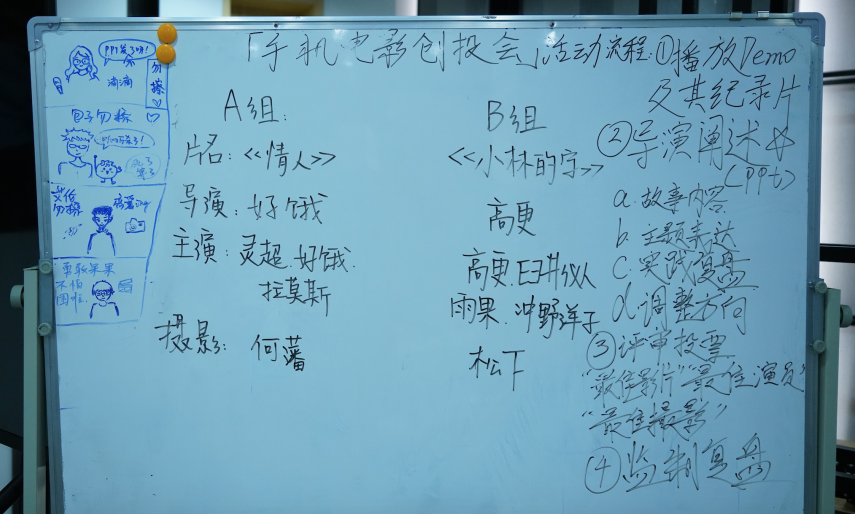 「手机电影创投会」活动流程:①播放Demo
及其纪录片
②导演阐述☆
(PPt)
a.故事内容
b.主题表达
c.实践复盘
d.调整方向
③评审投票
"最佳影片""最佳演员"
"最佳摄影"
④监制复盘
A组:
片名:<<情人>>
导演:好饿
主演:灵超.好饿.
拉莫斯
摄影:何藩
B组
<<小林的字>>
高更
高更.
雨果.冲野洋子
松下
PPT装了吗!
滴滴
勿擦
包子勿擦
勿擦
果果
不怕
困啦